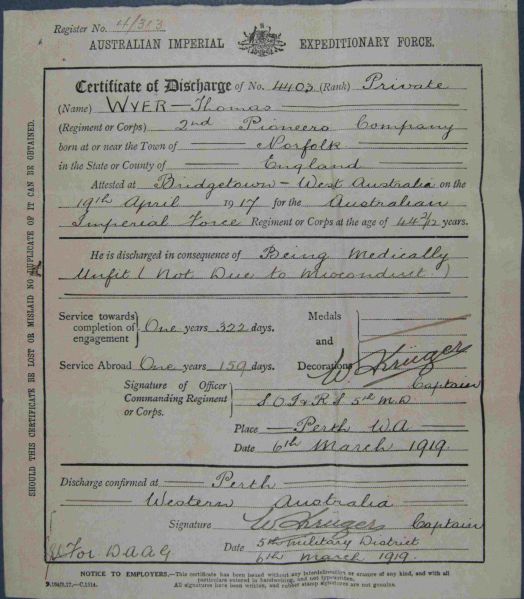 Register No. 4/313
AUSTRALIAN IMPERIAL EXPEDITIONARY FORCE.
Certificate of Discharge of No. 4403 (Rank) Private
(Name) WYER - Thomas
(Regiment or Corps) 2nd Pioneers Company
born at or near the Town of Norfolk
in the State or County of England
Attested at Bridgetown - West Australia on the
19th April 1917 for the Australian
Imperial Force Regiment or Corps at the age of 44 3/12 years.
He is discharged in consequence of Being Medically
Unfit (Not Due to Misconduct)
Service towards completion of engagement } One years 322 days.
Service Abroad One years 159 days.
Medals
and
Decorations
W. Krüeger
Captain
Signature of Officer Commanding Regiment or Corps.
S.O.I & R.S 5th M.D
Place Perth W A
Date 6th March 1919.
Discharge confirmed at Perth
Western Australia
Signature W Krüeger Captain
Date 5th Military District
6th March 1919.
For D A A G
SHOULD THIS CERTIFICATE BE LOST OR MISLAID NO DUPLICATE OF IT CAN BE OBTAINED.
NOTICE TO EMPLOYERS.—This certificate has been issued without any interlineation or erasure of any kind, and with all
particulars entered in handwriting, and not typewritten.
All signatures have been written, and rubber stamp signatures are not genuine.
C.1514.